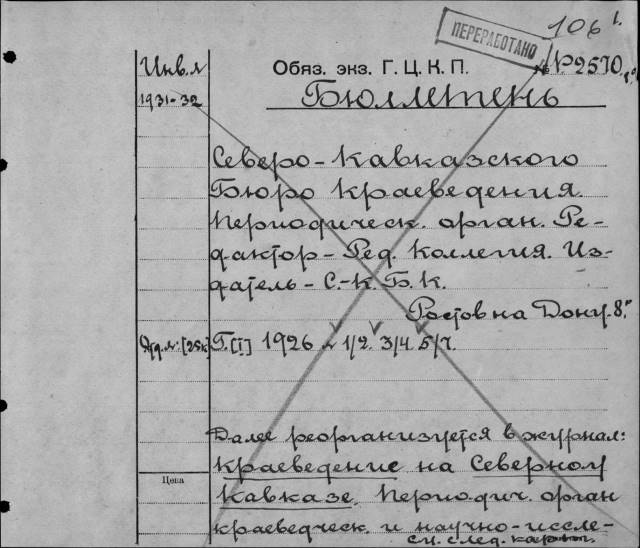 106
ПЕРЕРАБОТАНО
Инв.л
Обяз. экз. Г. Ц. К. П.
№ 2570
1931-32
Бюллетень
Северо-Кавказского
Бюро Краеведения.
Периодическ. орган. Ре-
дактор - Ред. Коллегия. Из-
датель - С.-К. Б. К.
Ростов на Дону. 8°
[25к] Г. [I] 1926 № 1/2. 3/4. 5/7.
Далее реорганизуется в журнал:
Цена
Краеведение на Северном
Кавказе. Периодич. орган
краеведческ. и научно-иссле-
см. след. карточ.